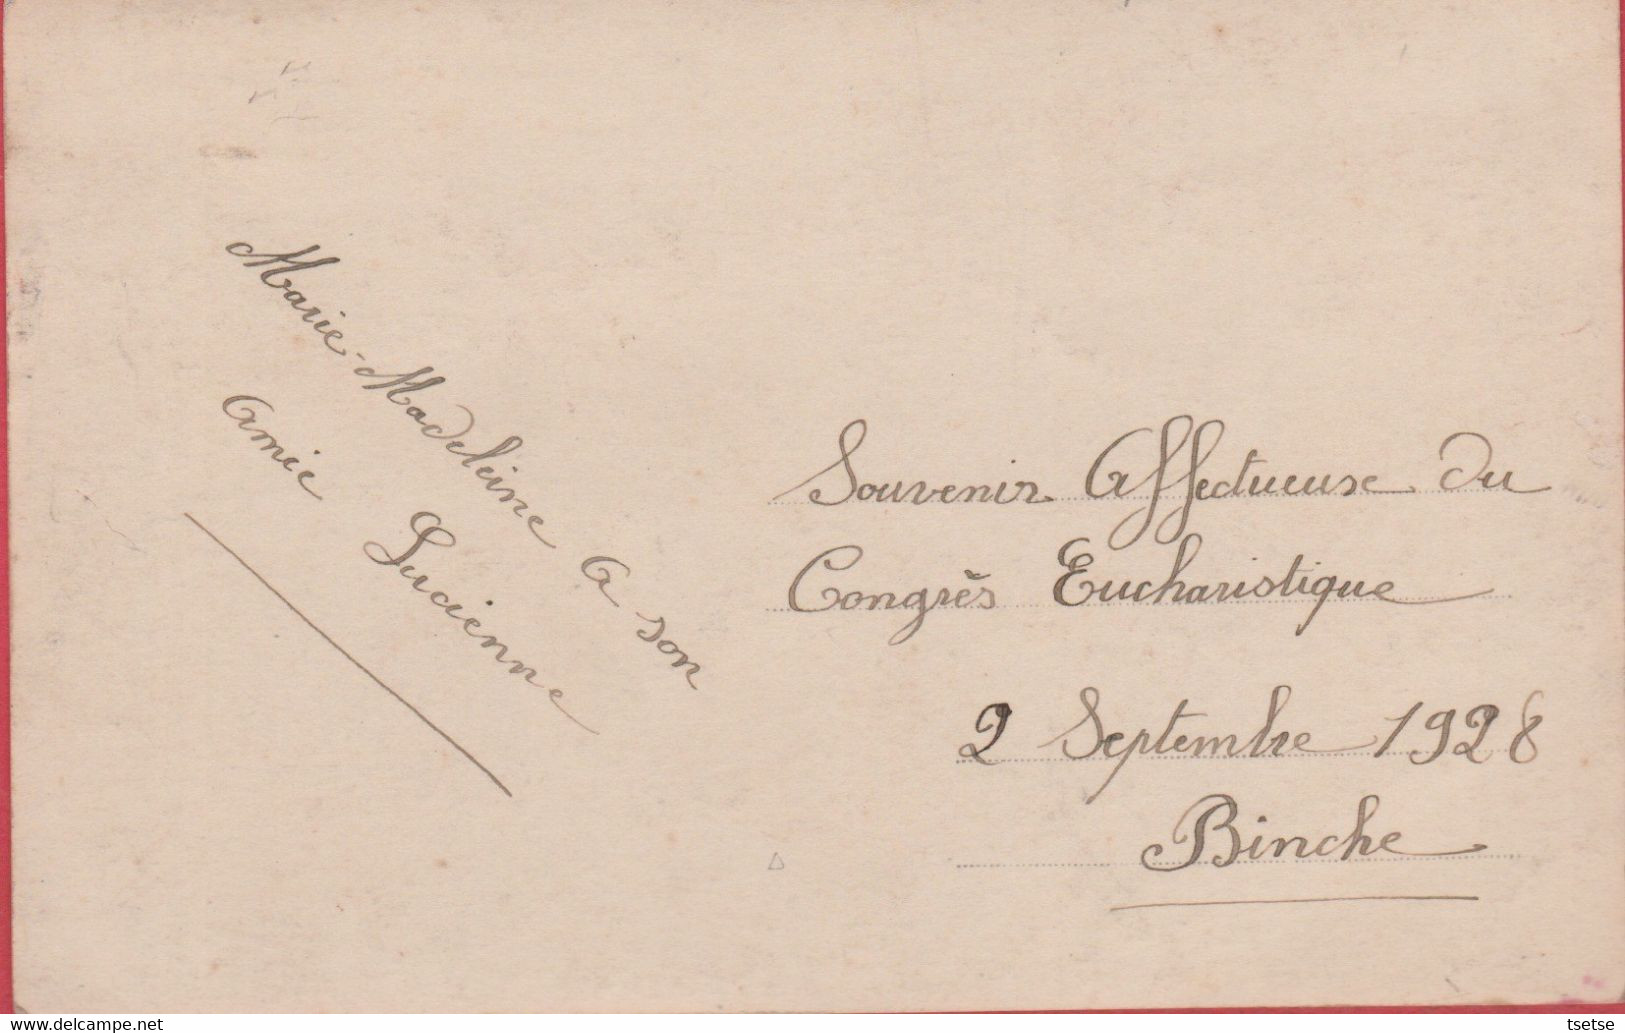 Marie-Madeleine A son
Amie Lucienne
Souvenir Affectueuse du
Congrès Eucharistique
2 Septembre 1928
Binche
delcampe.net
tsetse